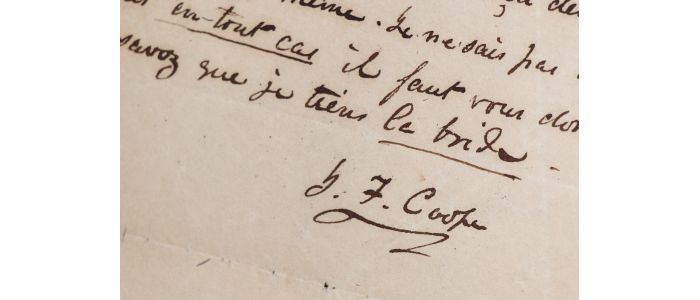 même. Je ne sais pas
en tout cas il faut vous don
savoz que je tiens la bride.
J. F. Cooper